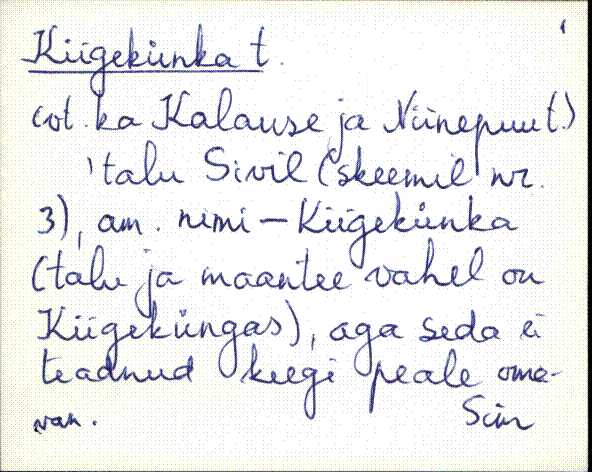 Kiigekünka t.
(vt. ka Kalause ja Niinepuu t.)
'talu Sivil (skeemil nr.
3), am. nimi – Kiigekünka
(talu ja maantee vahel on
Kiigeküngas), aga seda ei
teadnud keegi peale oma-
Siim